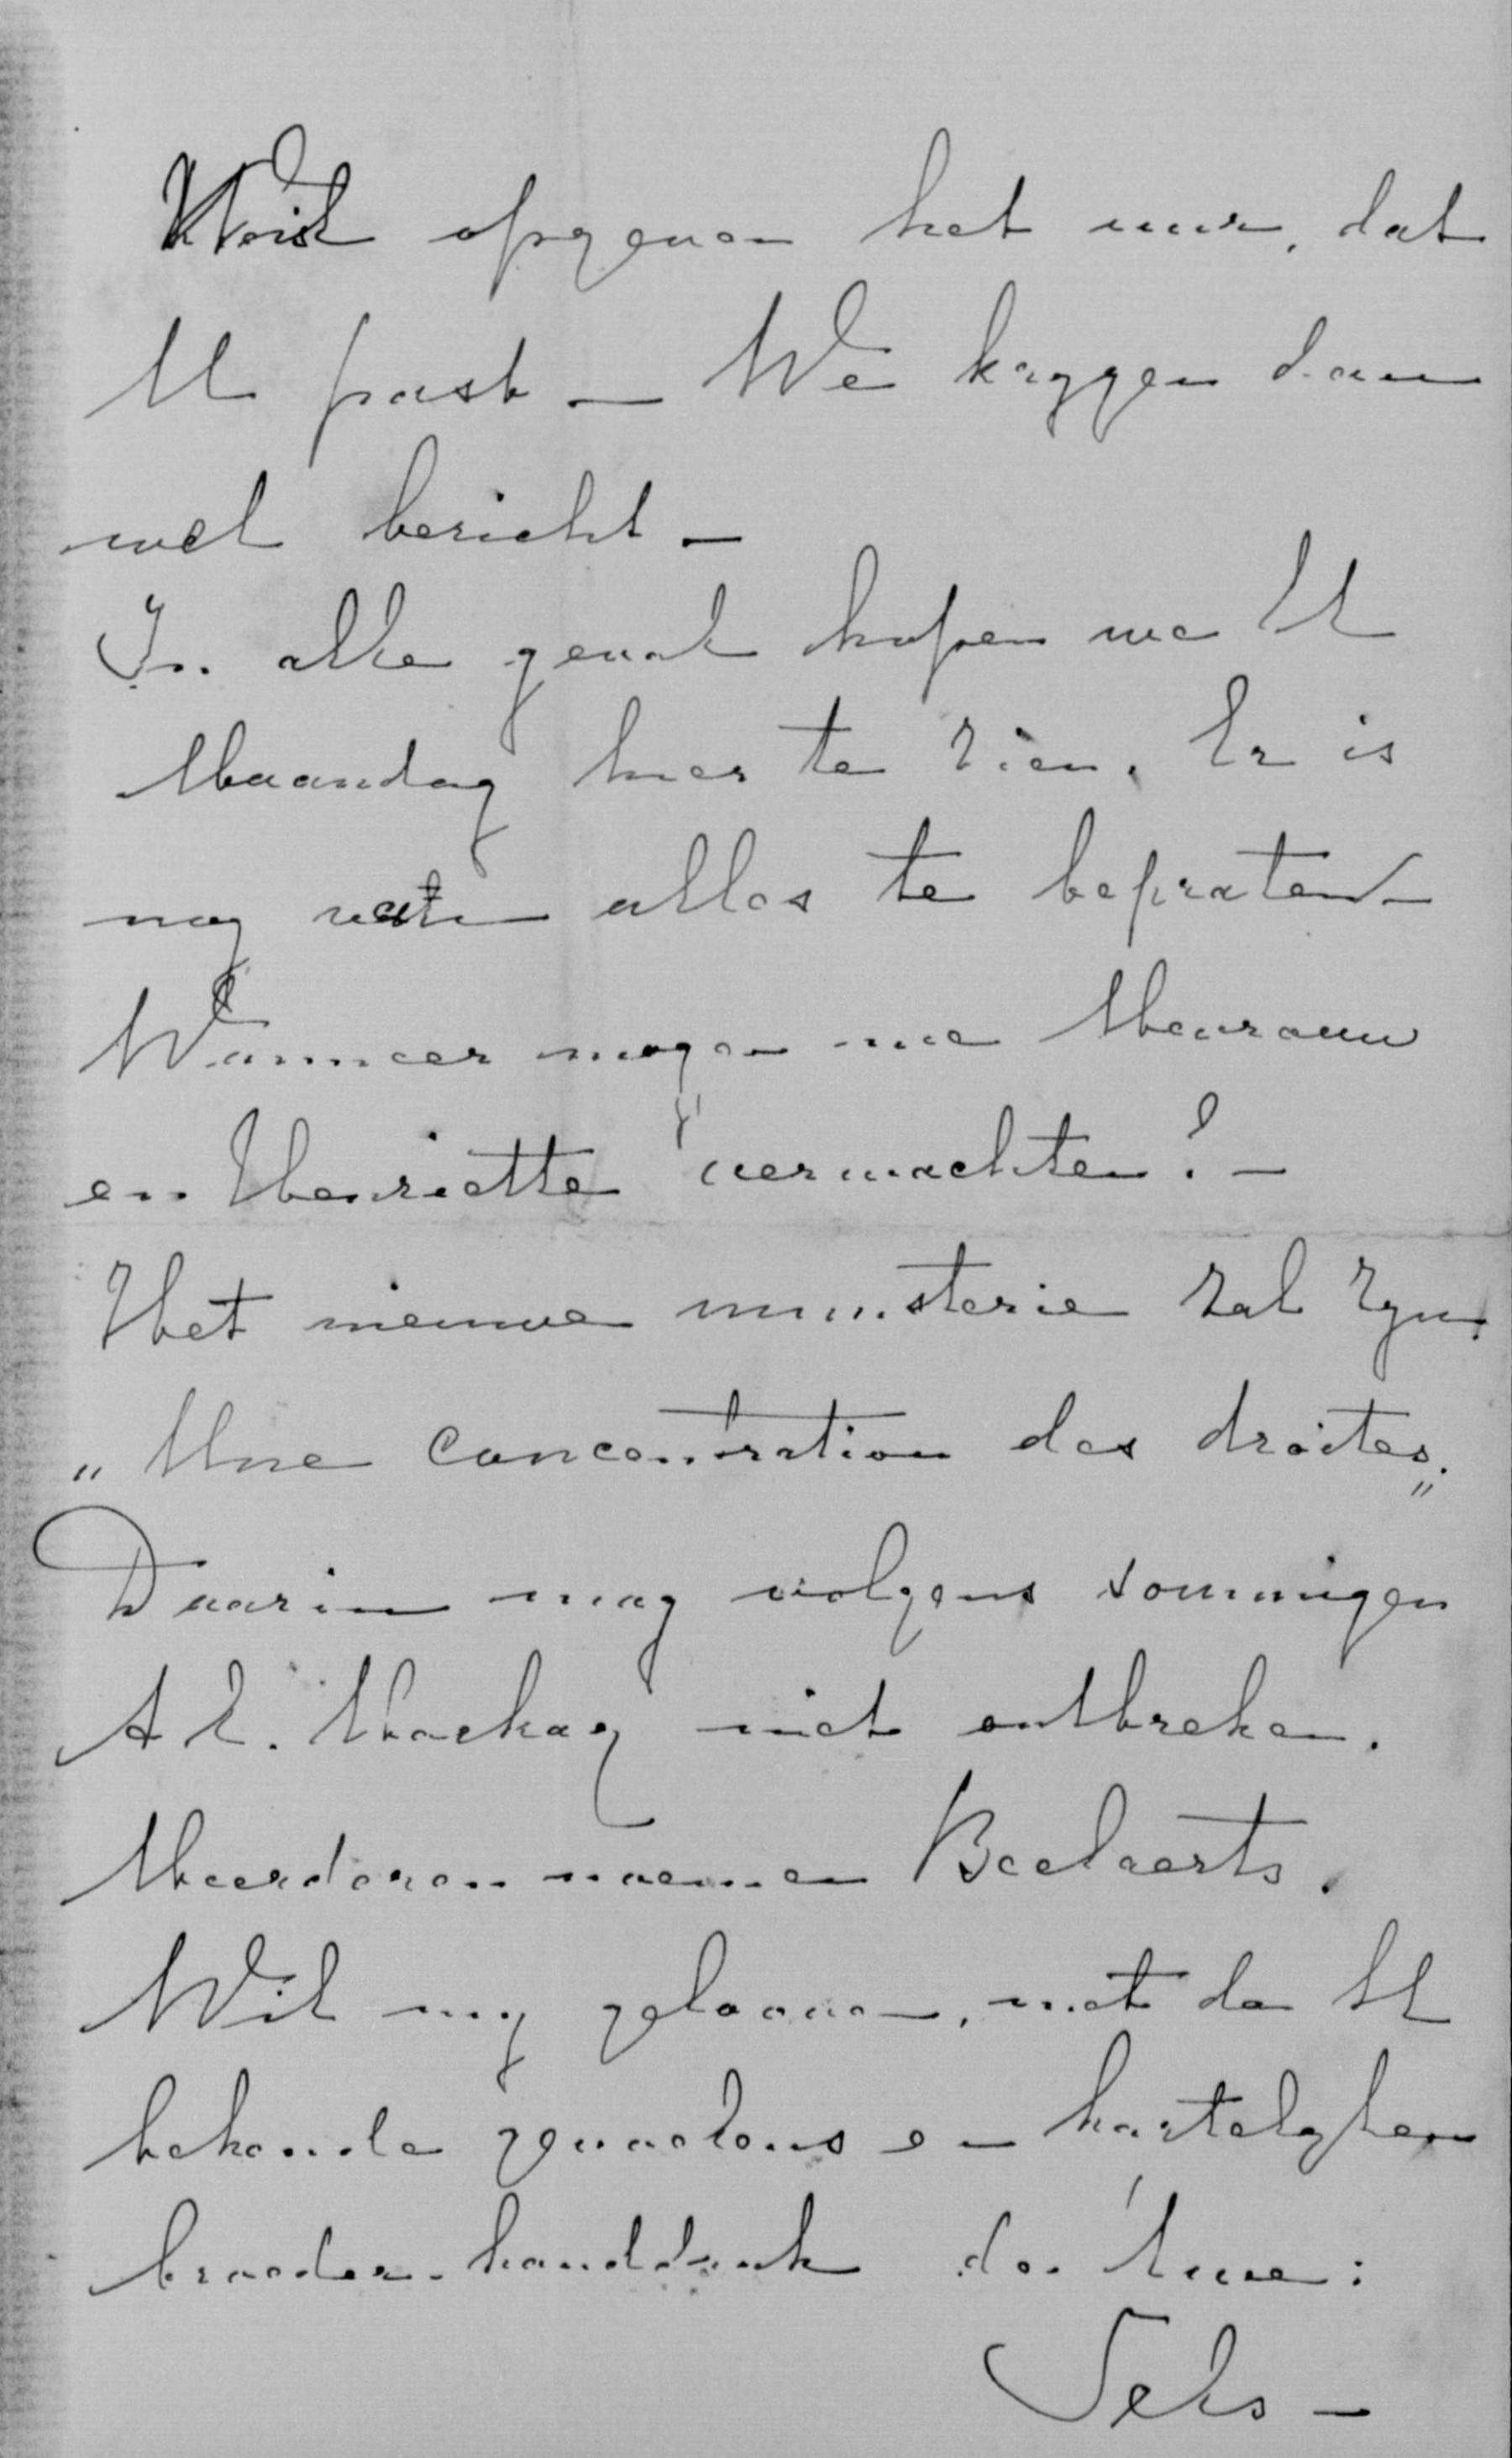 Wil opgeven het uur, dat
U past — We krygen dan
wel bericht —
In alle geval hopen we U
Maandag hier te zien. Er is
nog veel alles te bepraten —
Wanneer mogen we Mevrouw
en Henriette verwachten? —
Het nieuwe ministerie zal zyn:
„Une concentration des droites„.
Daarin mag volgens sommigen
A E. Mackay niet ontbreken.
Meerderen noemen Beelaerts.
Wil my gelooven, met de U
bekende gevoelens en hartelyken
broeder-handdruk de Uwe:
Sels —